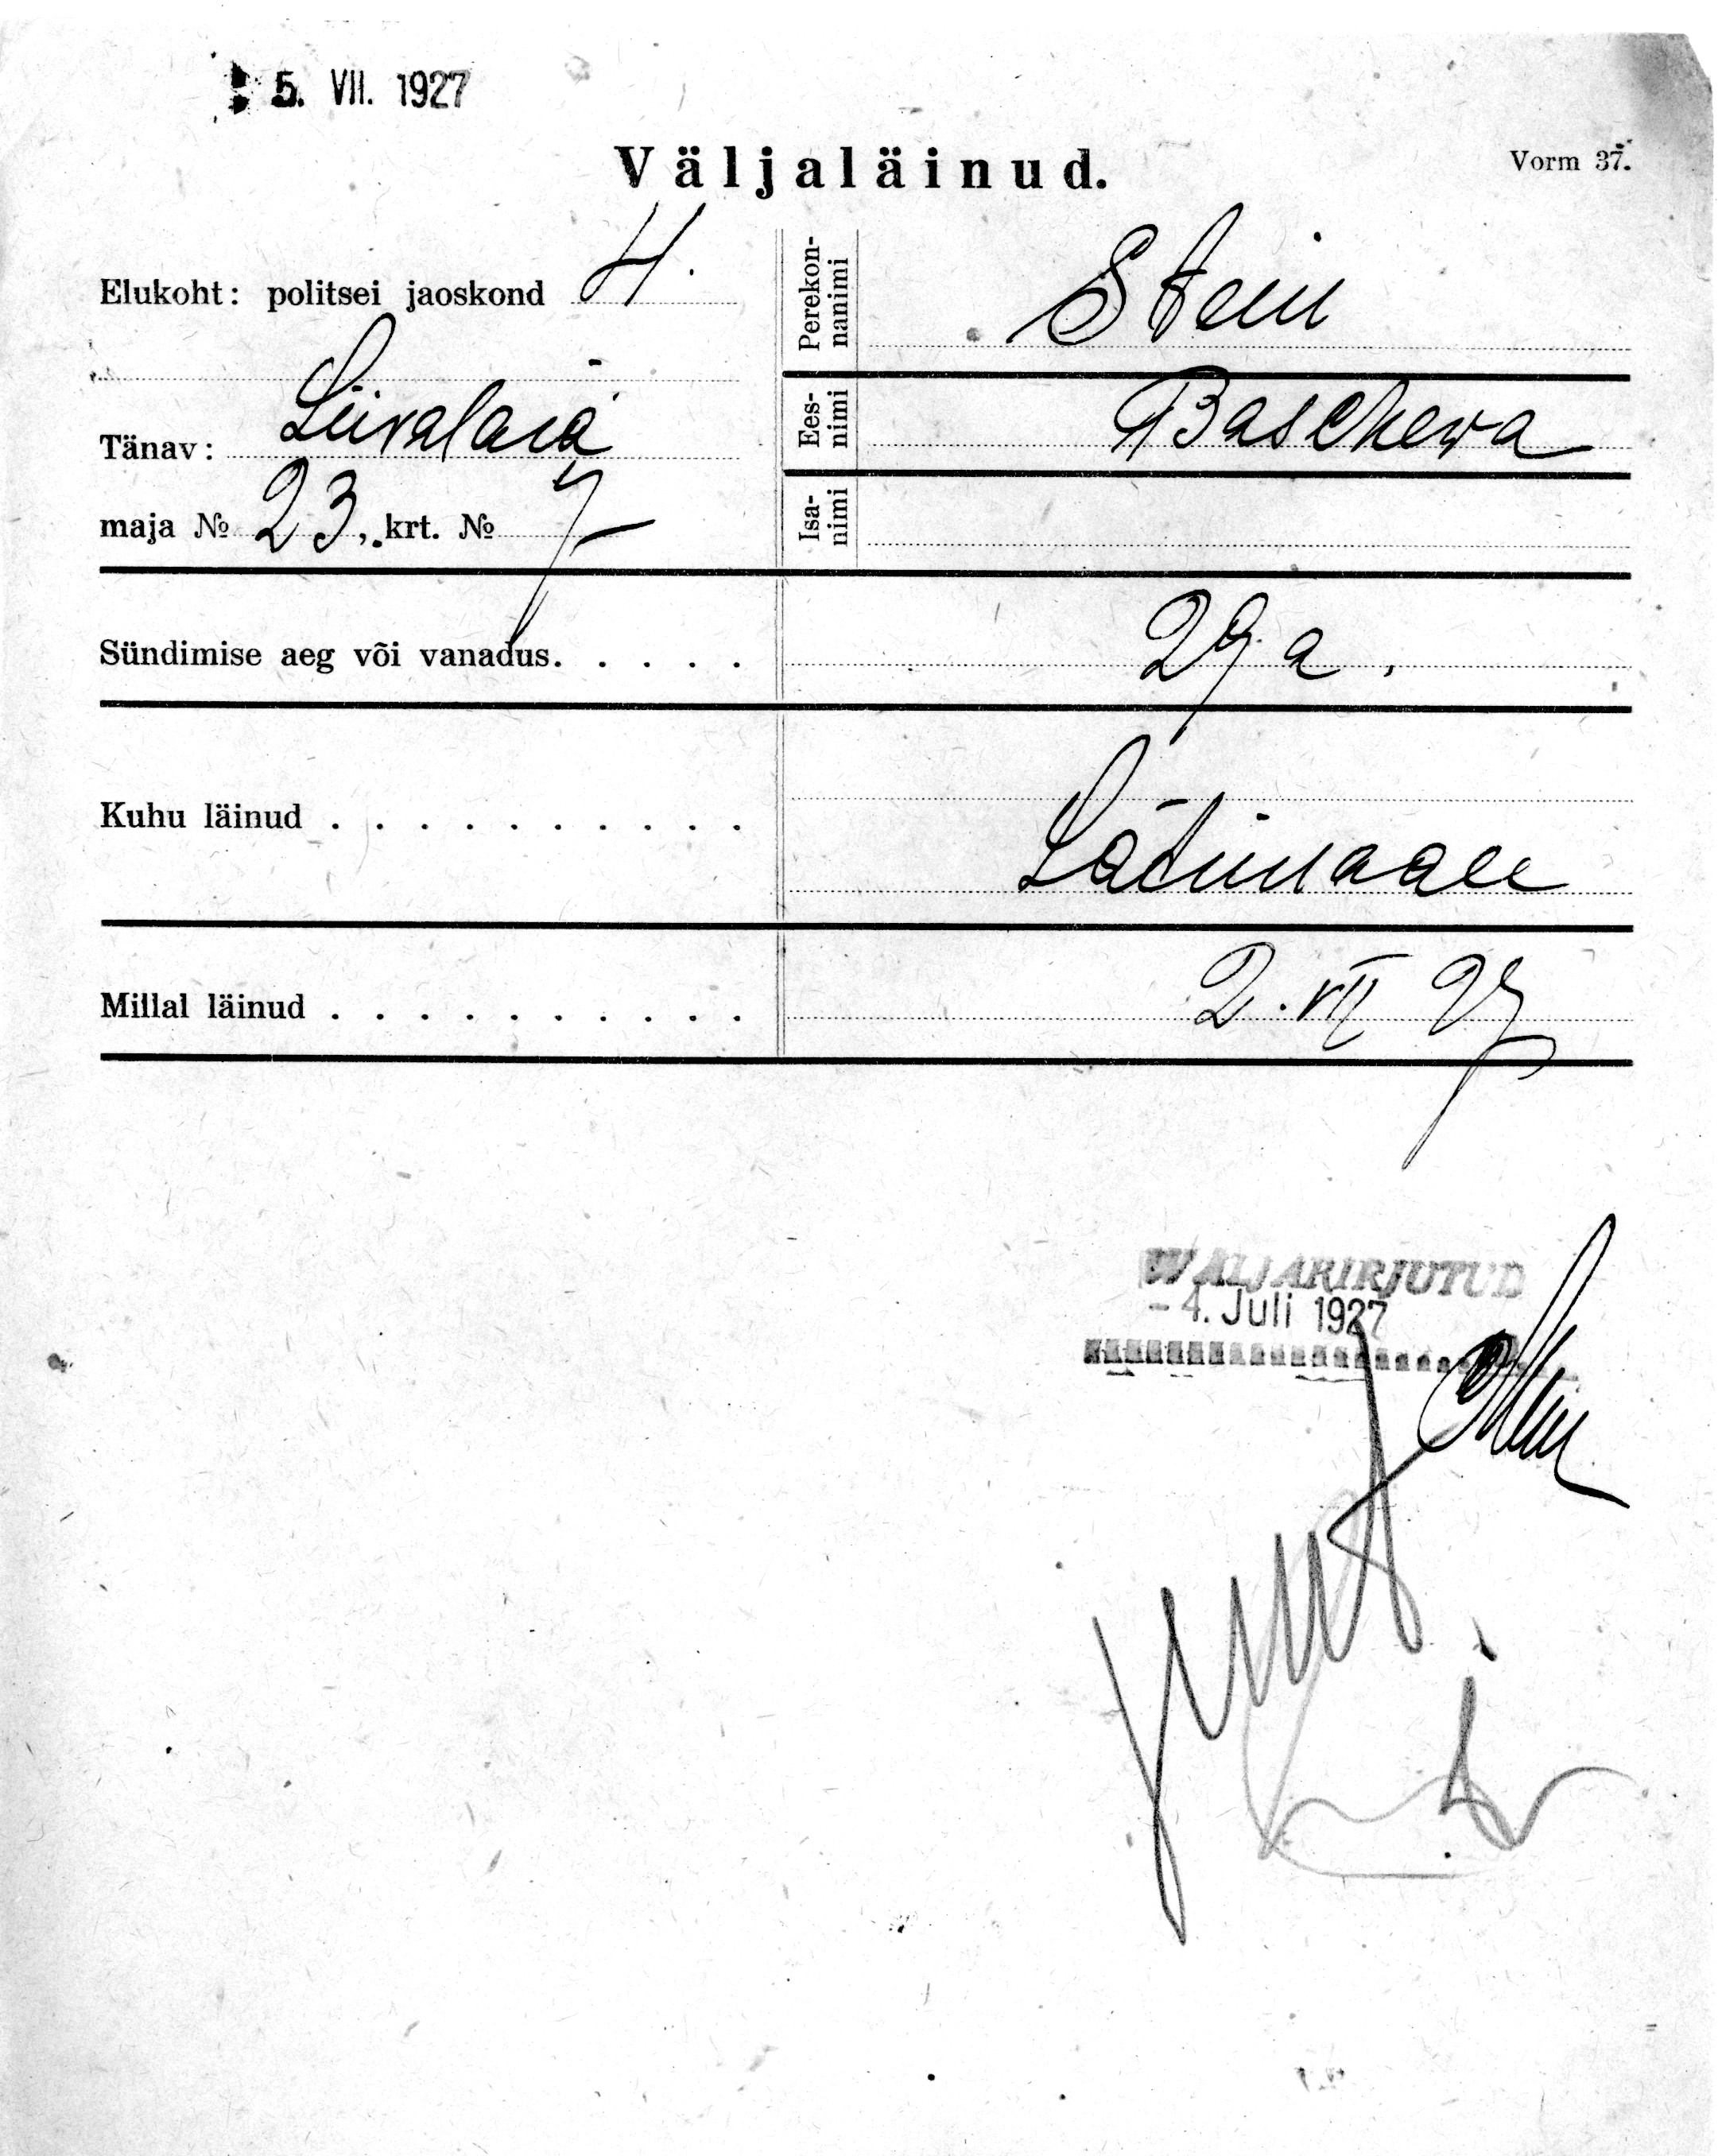 5. VII. 1927
Väljaläinud.
Vorm 37.
Elukoht: politsei jaoskond 4.
Tänav: Liivalaia
maja № 23, krt. № 7
Perekonnanimi Stein
Eesnimi Baschewa
Isanimi
Sündimise aeg või vanadus. . . . . 29 a.
Kuhu läinud . . . . . . . . . . Lätimaale
Millal läinud . . . . . . . . . . 2. VII 27
WÄLJAKIRJUTUD
- 4. Juli 1927